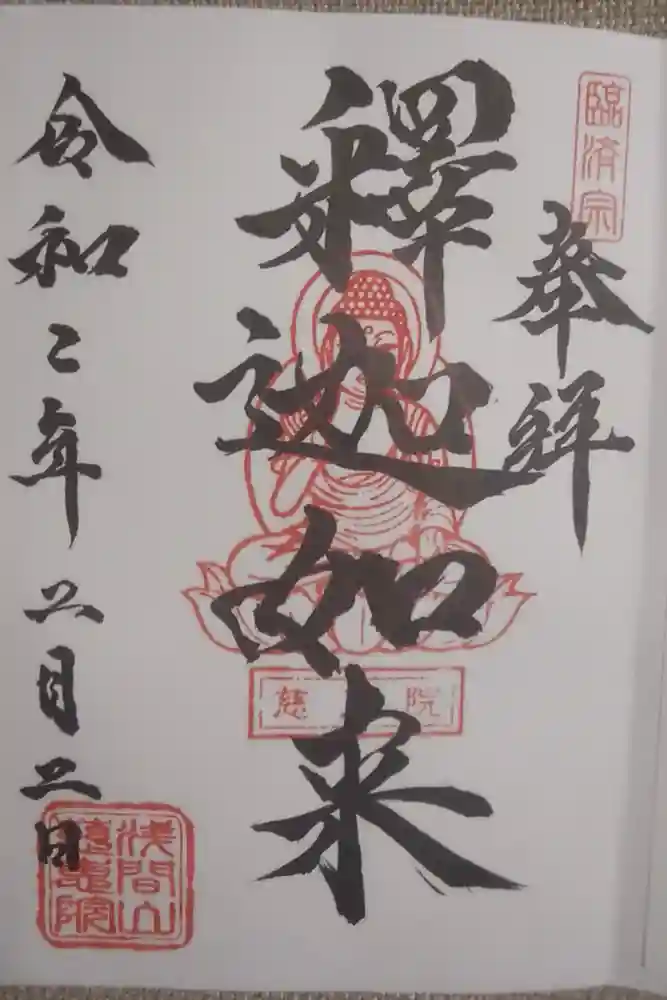 臨済宗
奉拝
釋迦如来
慈 院
令和二年二月二日
浅間山
慈 院